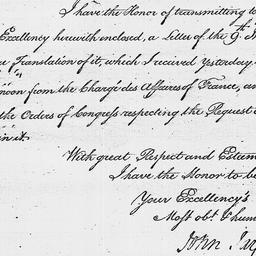 I have the Honor of transmitting to
Excellency herewith enclosed, a Letter of the 9th
Translation of it, which I received Yesterday
noon from the Chargé des Affaires of France, an
the Orders of Congress respecting the Request
in it.
With great Respect and Esteem
I have the Honor to be
Your Excellency's
Most obt. & hum
John Jay